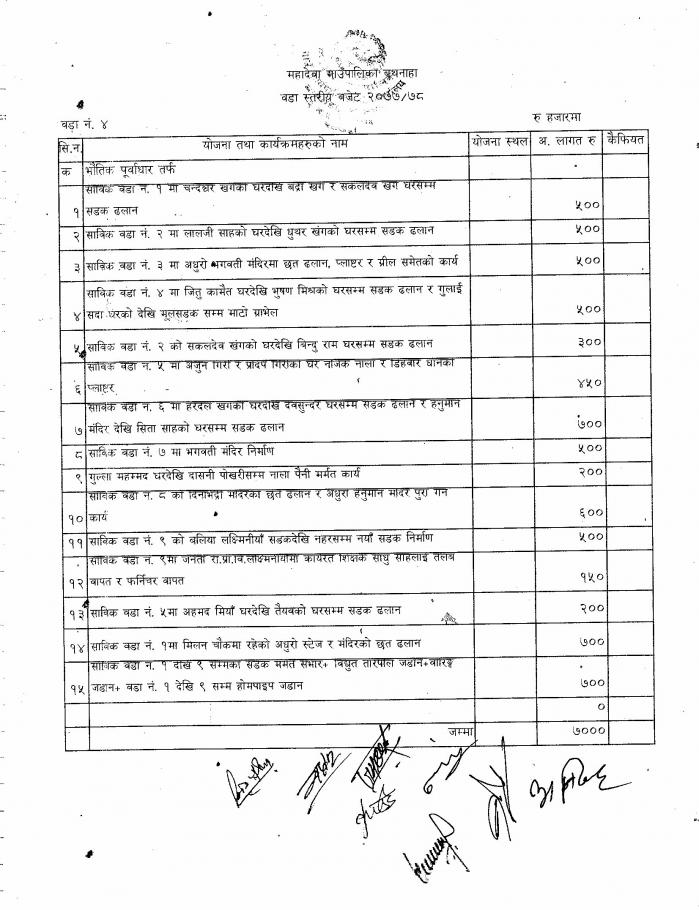 महादेवा गाउँपालिका
वडा स्तरीय बजेट २०७७/७८
वडा नं. ४
रु हजारमा
सि.न. योजना तथा कार्यक्रमहरुको नाम योजना स्थल अ. लागत रु कैफियत
क भौतिक पूर्वाधार तर्फ
साविक वडा नं. १ मा चन्देश्वर खंगको घरदेखि बद्री खंग र सकलदेव खंग घरसम्म
१ सडक ढलान ५००
२ साविक वडा नं. २ मा लालजी साहको घरदेखि धुथर खंगको घरसम्म सडक ढलान ५००
३ साविक वडा नं. ३ मा अधुरो भगवती मंदिरमा छत ढलान, प्लाष्टर र ग्रील समेतको कार्य ५००
साविक वडा नं. ४ मा जितु कामैत घरदेखि भुषण मिश्रको घरसम्म सडक ढलान र गुलाई
४ सदा घरको देखि मूलसडक सम्म माटो ग्राभेल ५००
५ साविक वडा नं. २ को सकलदेव खंगको घरदेखि बिन्दु राम घरसम्म सडक ढलान ३००
साविक वडा नं. ५ मा अर्जुन गिरी र प्रदिप गिरीको घर नजिक नाला र डिहवार थानको
६ प्लाष्टर ४५०
साविक वडा नं. ६ मा हरदेल खंगको घरदेखि देवसुन्दर घरसम्म सडक ढलान र हनुमान
७ मंदिर देखि सिता साहको घरसम्म सडक ढलान ७००
८ साविक वडा नं. ७ मा भगवती मंदिर निर्माण ५००
९ गुल्ला महम्मद घरदेखि दासनी पोखरीसम्म नाला पैनी मर्मत कार्य २००
साविक वडा नं. ८ को दिनाभद्री मंदिरको छत ढलान र अधुरो हनुमान मंदिर पुरा गर्ने
१० कार्य ६००
११ साविक वडा नं. ९ को बलिया लक्ष्मिनीयाँ सडकदेखि नहरसम्म नयाँ सडक निर्माण ५००
साविक वडा नं. ९मा जनता रा.प्रा.वि.लक्ष्मिनीयाँमा कार्यरत शिक्षक साधु साहलाई तलब
१२ वापत र फर्निचर वापत १५०
१३ साविक वडा नं. ५मा अहमद मियाँ घरदेखि तैयबको घरसम्म सडक ढलान २००
१४ साविक वडा नं. १मा मिलन चौकमा रहेको अधुरो स्टेज र मंदिरको छत ढलान ७००
साविक वडा नं. १ देखि ९ सम्मको सडक मर्मत संभार+ विद्युत तारपोल जडान+वारिङ्ग
१५ जडान+ वडा नं. १ देखि ९ सम्म होमपाइप जडान ७००
०
जम्मा ७०००